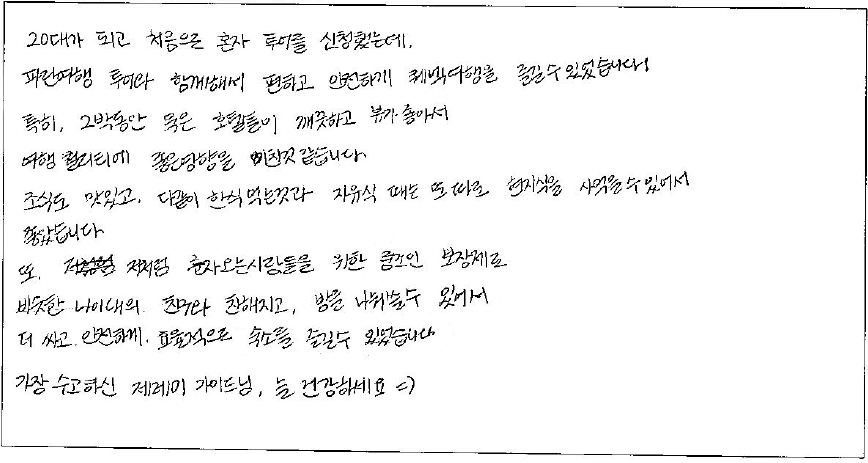 20대가 되고 처음으로 혼자 투어를 신청했는데,
파란여행 투어와 함께해서 편하고 안전하게 퀘벡여행을 즐길 수 있었습니다!
특히, 2박동안 묵은 호텔들이 깨끗하고 뷰가 좋아서
여행 퀄리티에 좋은영향을 미친것 같습니다.
조식도 맛있고, 다같이 한식 먹는것과 자유식 때는 또 따로 현지식을 사먹을 수 있어서
좋았습니다
또, 저처럼 혼자오는사람들을 위한 룸조인 보장제로
비슷한 나이대의 친구와 친해지고, 방을 나눠쓸수 있어서
더 싸고 안전하게, 효율적으로 숙소를 즐길수 있었습니다
가장 수고하신 제레미 가이드님, 늘 건강하세요 =)